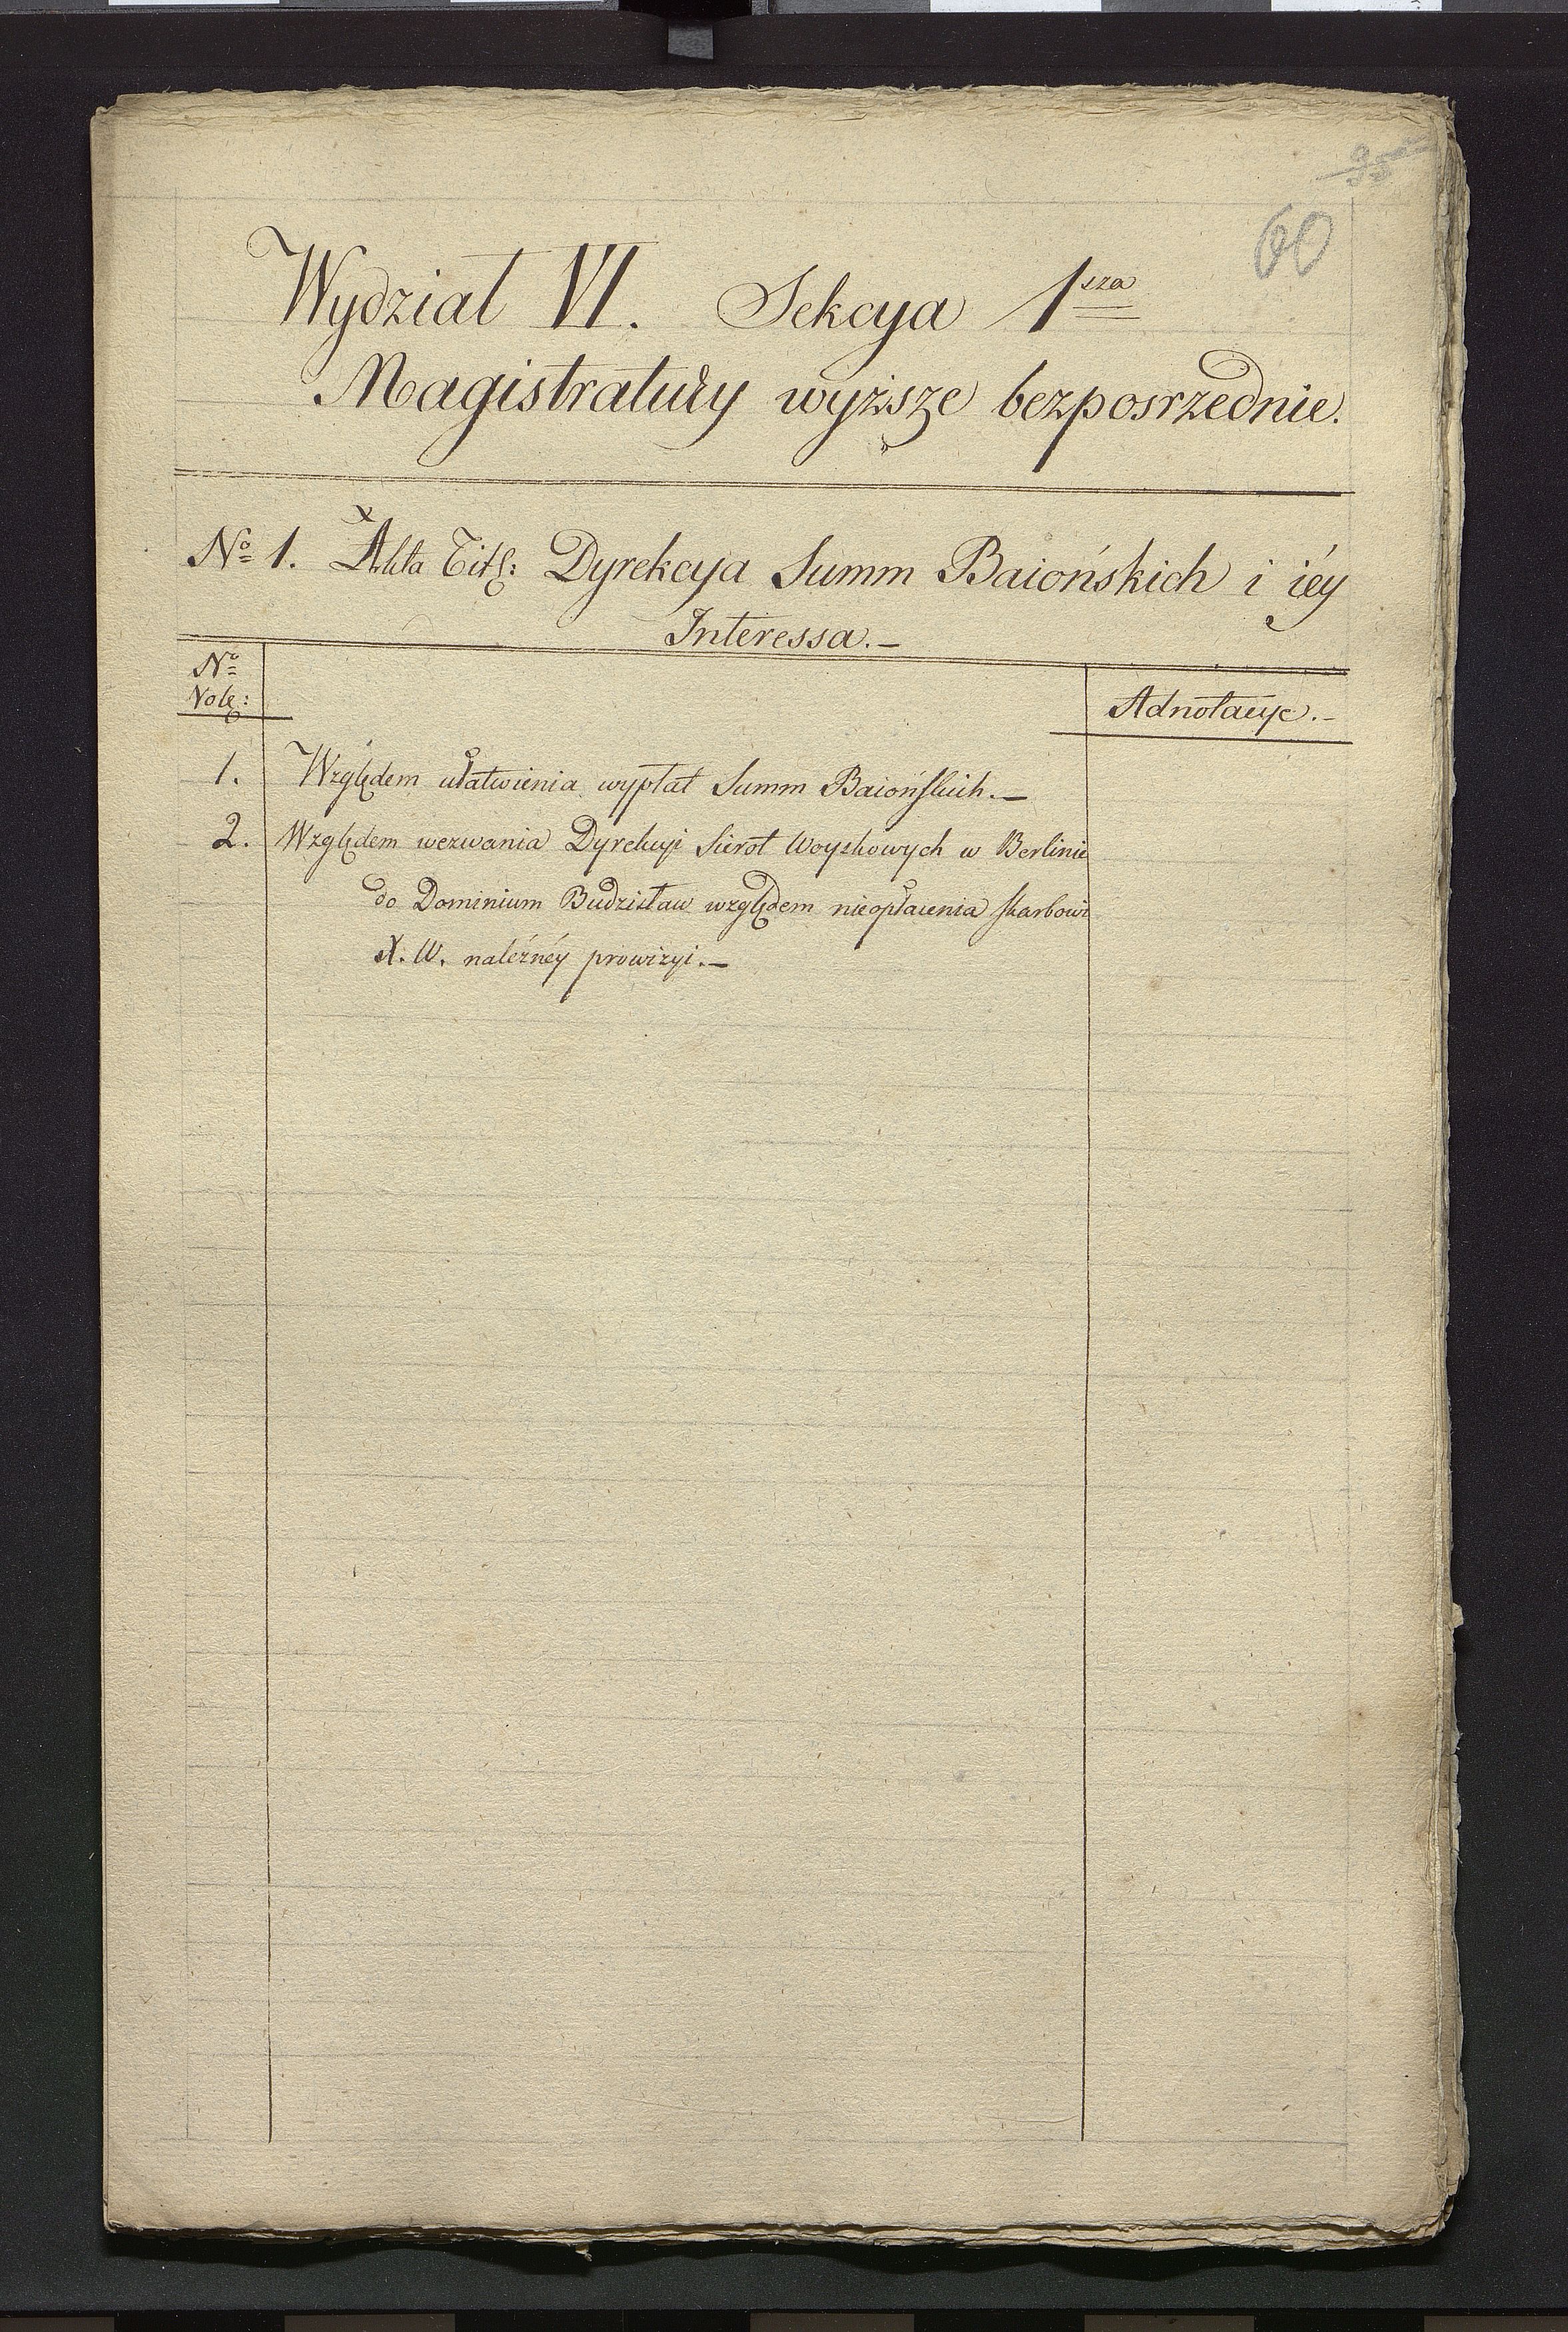 95
60
Wydział VI. Sekcya 1sza
Magistratury wyższe bezposrzednie.
No 1. Akta Titl: Dyrekcya Summ Baiońskich i iéy
Interessa.-
No
Vol: Adnotacye.-
1. Względem ułatwienia wypłat Summ Baiońskich.-
2. Względem wezwania Dyrekcyi Sierot Woyskowych w Berlinie
do Dominium Budzisław względem nieopłacenia skarbowi
X. W. należnéy prowizyi.-